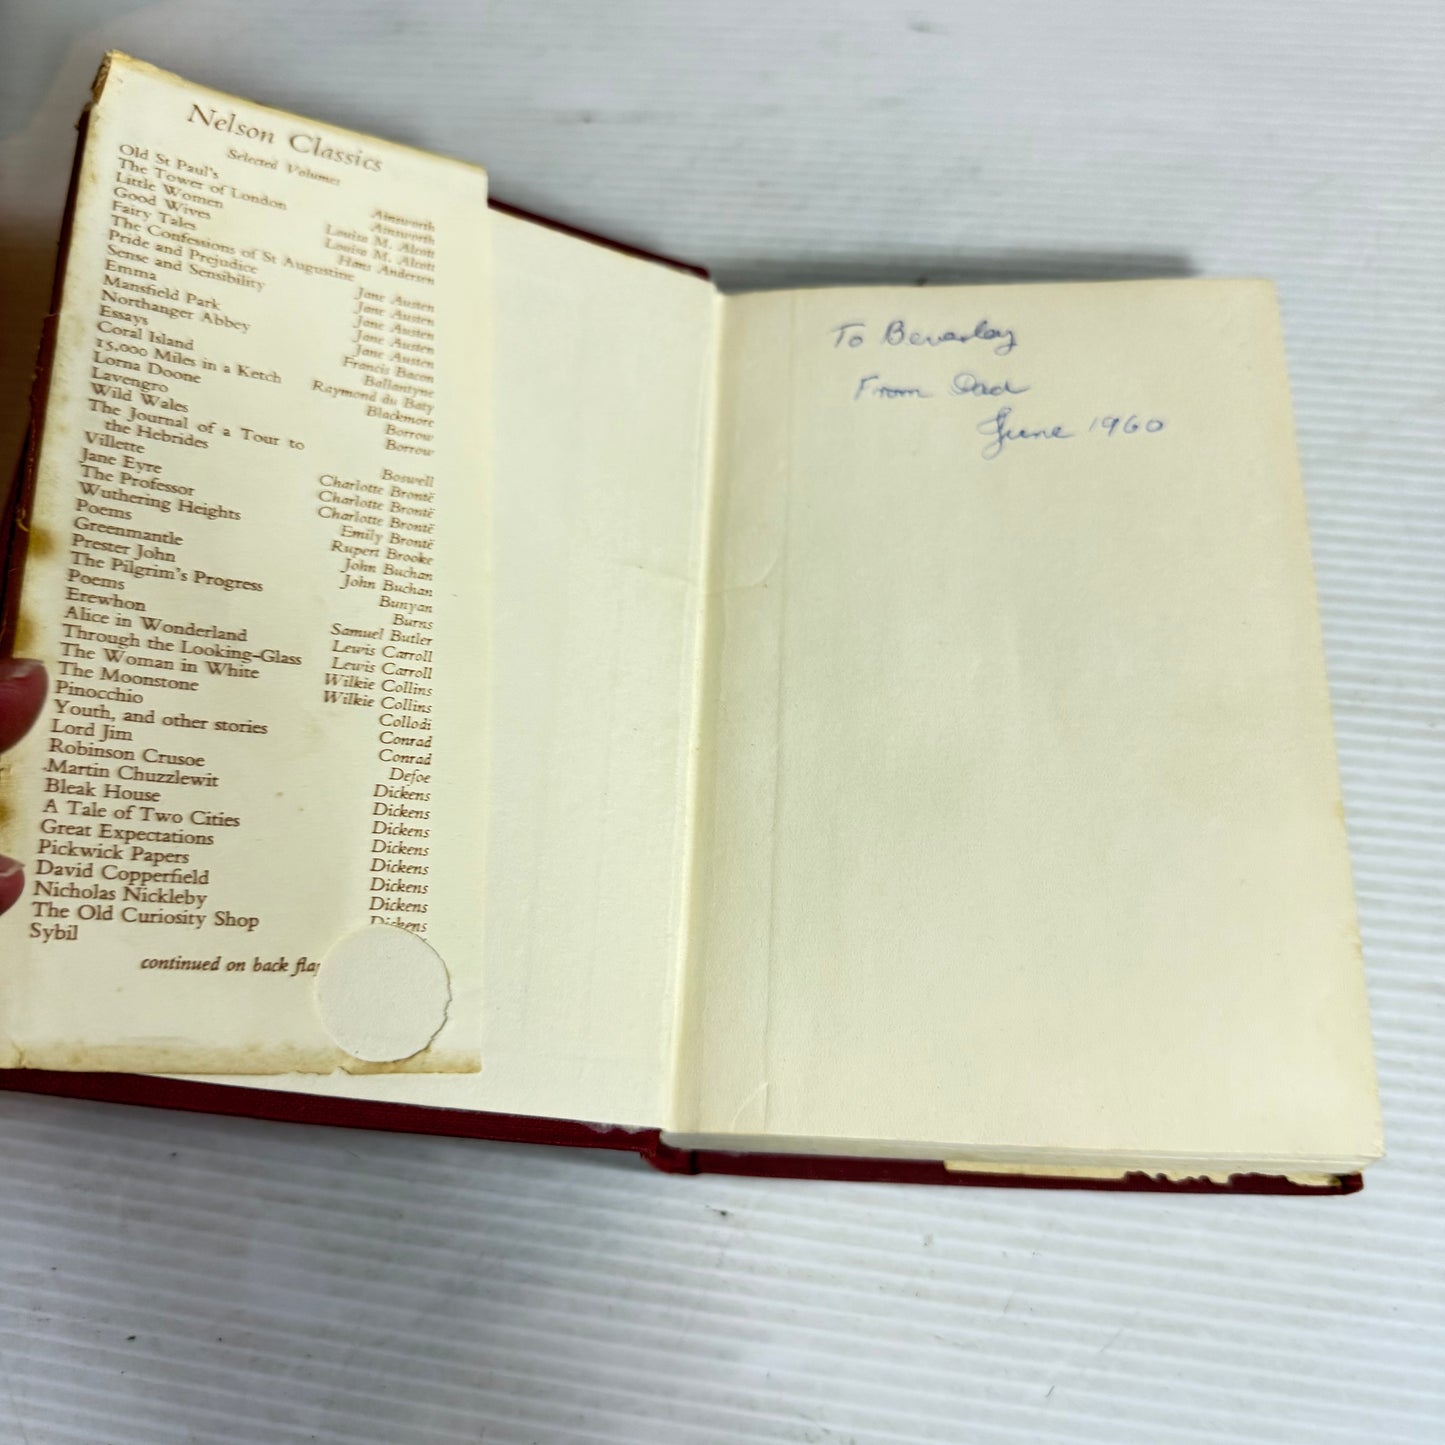 Nelson Classics
Selected Volumes
Old St Paul's Ainsworth
The Tower of London Ainsworth
Little Women Louisa M. Alcott
Good Wives Louisa M. Alcott
Fairy Tales Hans Andersen
The Confessions of St Augustine
Pride and Prejudice Jane Austen
Sense and Sensibility Jane Austen
Emma Jane Austen
Mansfield Park Jane Austen
Northanger Abbey Jane Austen
Essays Francis Bacon
Coral Island Ballantyne
15,000 Miles in a Ketch Raymond du Baty
Lorna Doone Blackmore
Lavengro Borrow
Wild Wales Borrow
The Journal of a Tour to
the Hebrides Boswell
Villette Charlotte Brontë
Jane Eyre Charlotte Brontë
The Professor Charlotte Brontë
Wuthering Heights Emily Brontë
Poems Rupert Brooke
Greenmantle John Buchan
Prester John John Buchan
The Pilgrim's Progress Bunyan
Poems Burns
Erewhon Samuel Butler
Alice in Wonderland Lewis Carroll
Through the Looking-Glass Lewis Carroll
The Woman in White Wilkie Collins
The Moonstone Wilkie Collins
Pinocchio Collodi
Youth, and other stories Conrad
Lord Jim Conrad
Robinson Crusoe Defoe
Martin Chuzzlewit Dickens
Bleak House Dickens
A Tale of Two Cities Dickens
Great Expectations Dickens
Pickwick Papers Dickens
David Copperfield Dickens
Nicholas Nickleby Dickens
The Old Curiosity Shop Dickens
Sybil
continued on back flap
To Beverley
From Dad
June 1960